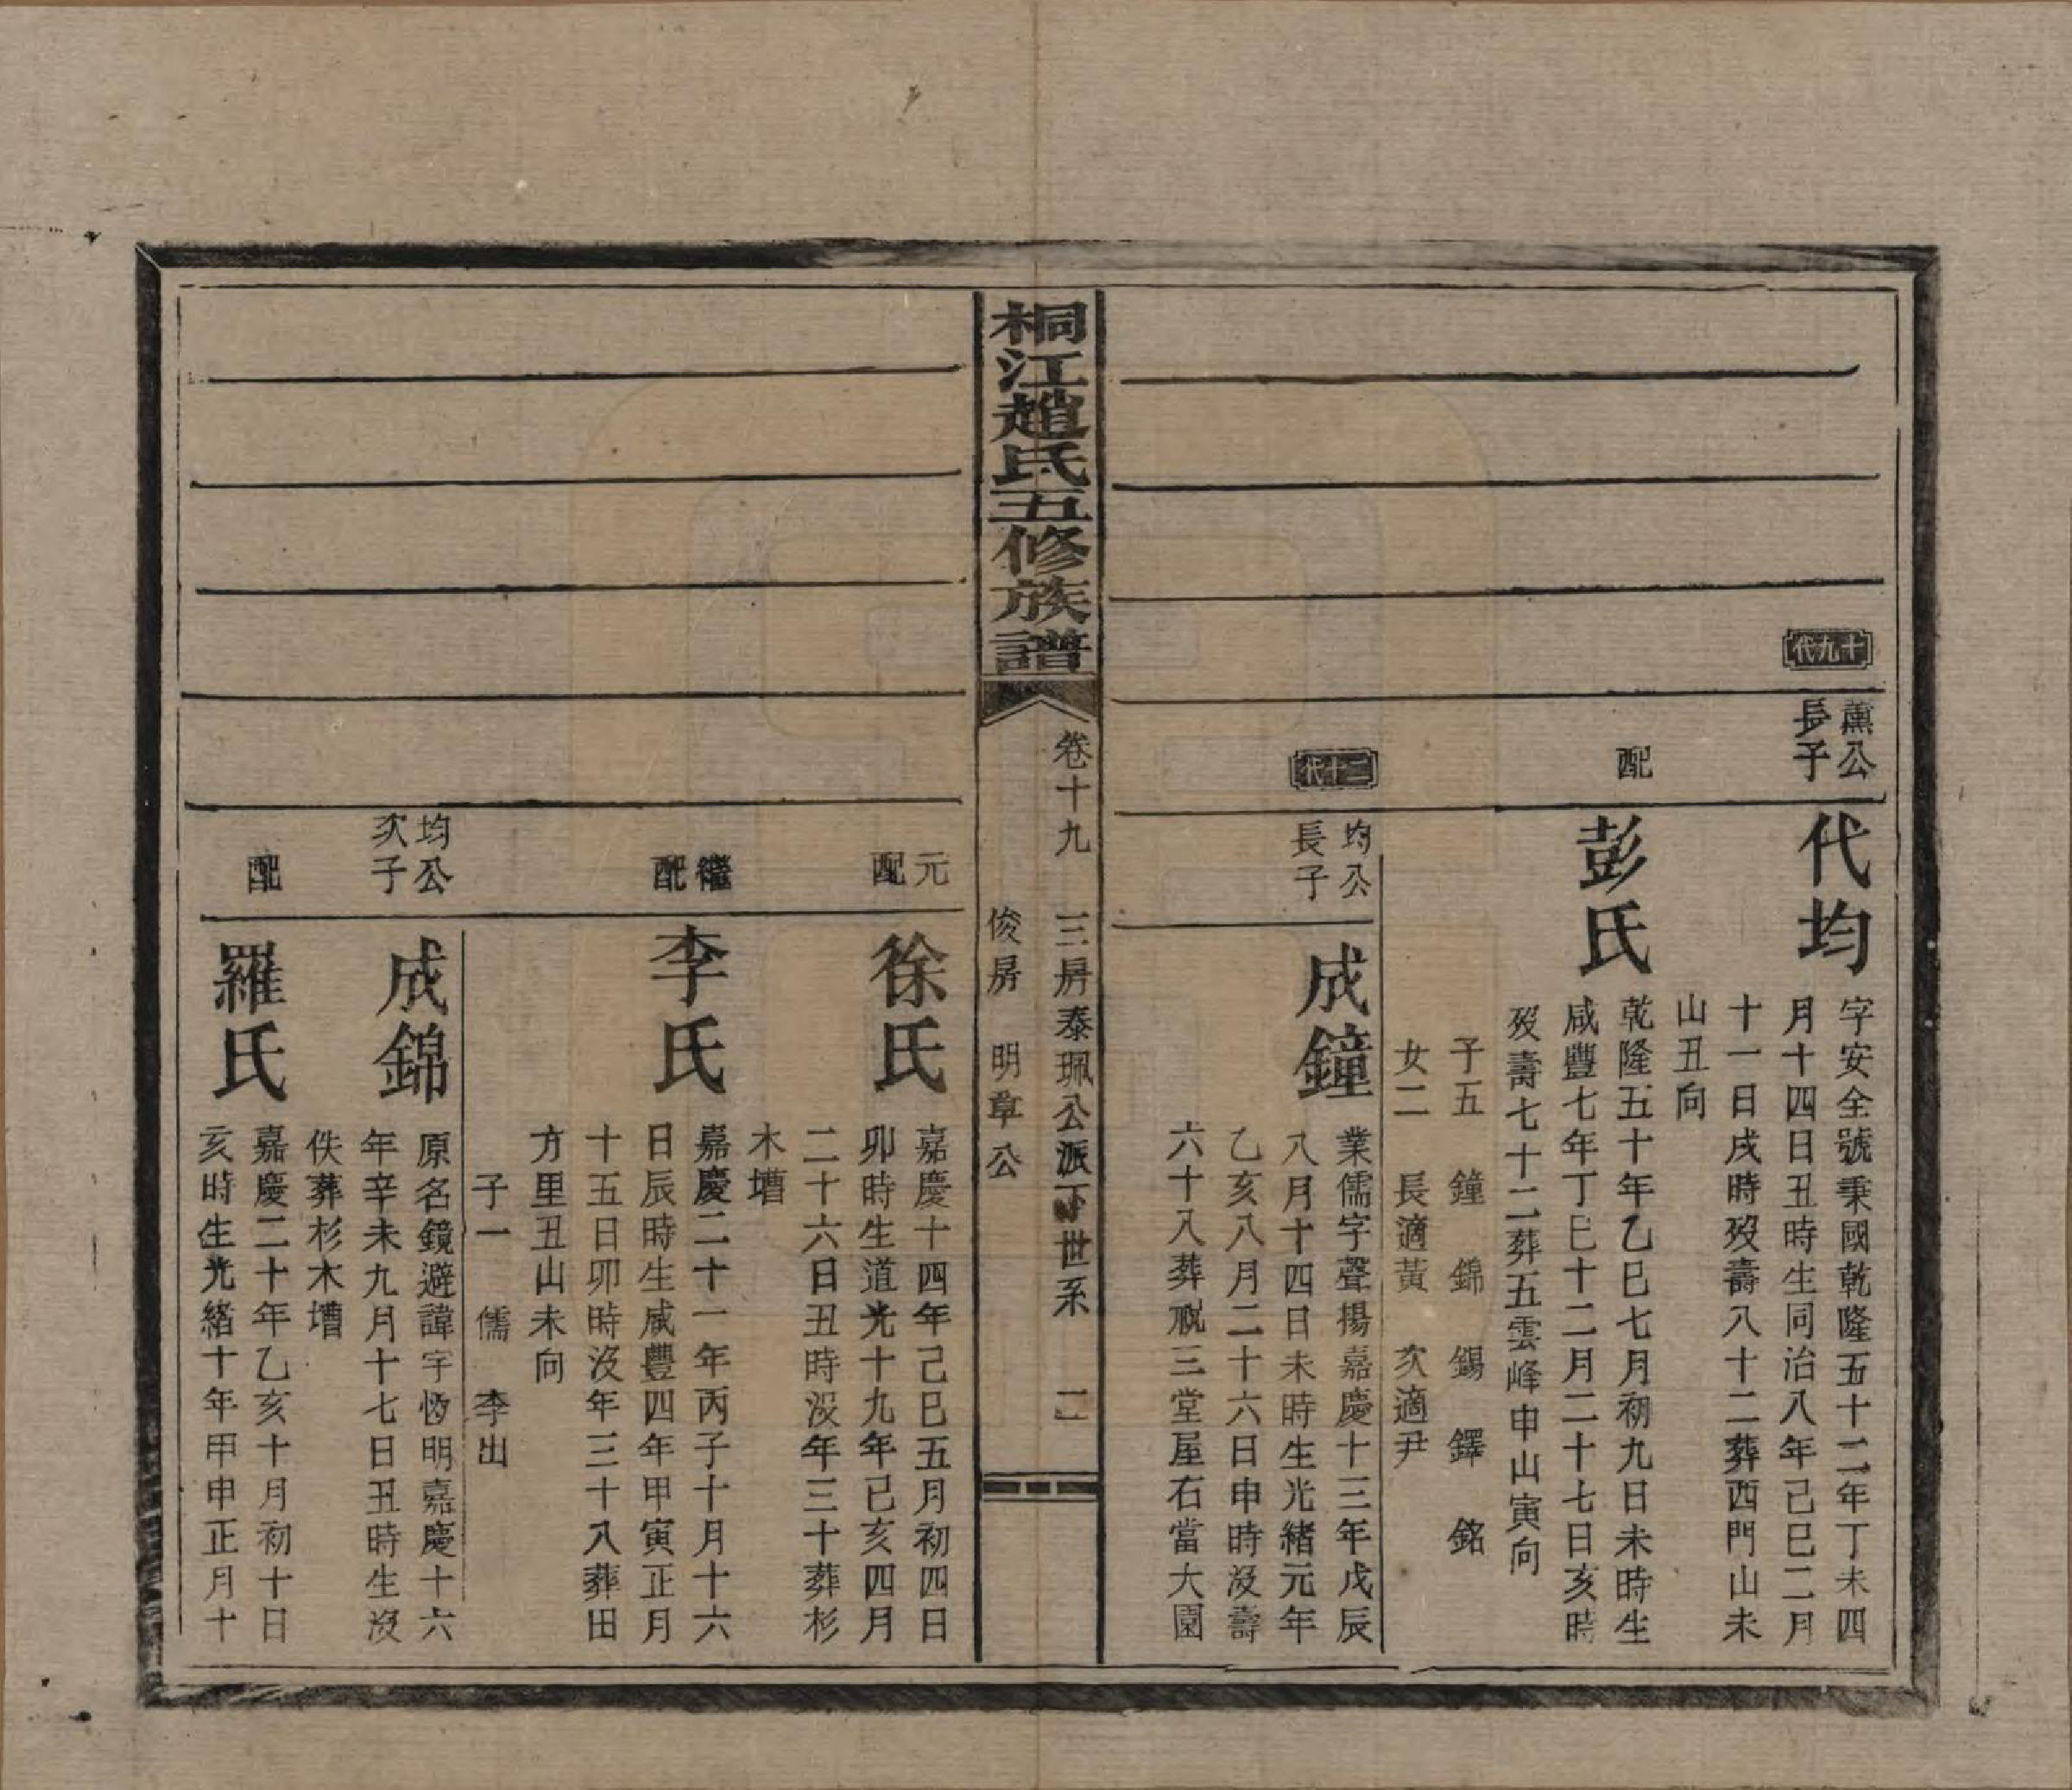 十九代
薰公
長子
代均
字安全號秉國乾隆五十二年丁未四
月十四日丑時生同治八年己巳二月
十一日戌時歿壽八十二葬西門山未
山丑向
配
彭氏
乾隆五十年乙巳七月初九日未時生
咸豐七年丁巳十二月二十七日亥時
歿壽七十二葬五雲峰申山寅向
子五 鐘 錦 錫 鐸 銘
女二 長適黃 次適尹
二十代
均公
長子
成鐘
業儒字聲揚嘉慶十三年戊辰
八月十四日未時生光緒元年
乙亥八月二十六日申時沒壽
六十八葬祝三堂屋右當大園
桐江趙氏五修族譜
卷十九 三房泰珮公派下世系 二
俊房 明章公
元
配
徐氏
嘉慶十四年己巳五月初四日
卯時生道光十九年己亥四月
二十六日丑時沒年三十葬杉
木壋
繼
配
李氏
嘉慶二十一年丙子十月十六
日辰時生咸豐四年甲寅正月
十五日卯時沒年三十八葬田
方里丑山未向
子一 儒 李出
均公
次子
成錦
原名鏡避諱字明嘉慶十六
年辛未九月十七日丑時生沒
佚葬杉木壋
配
羅氏
嘉慶二十年乙亥十月初十日
亥時生光緒十年甲申正月十